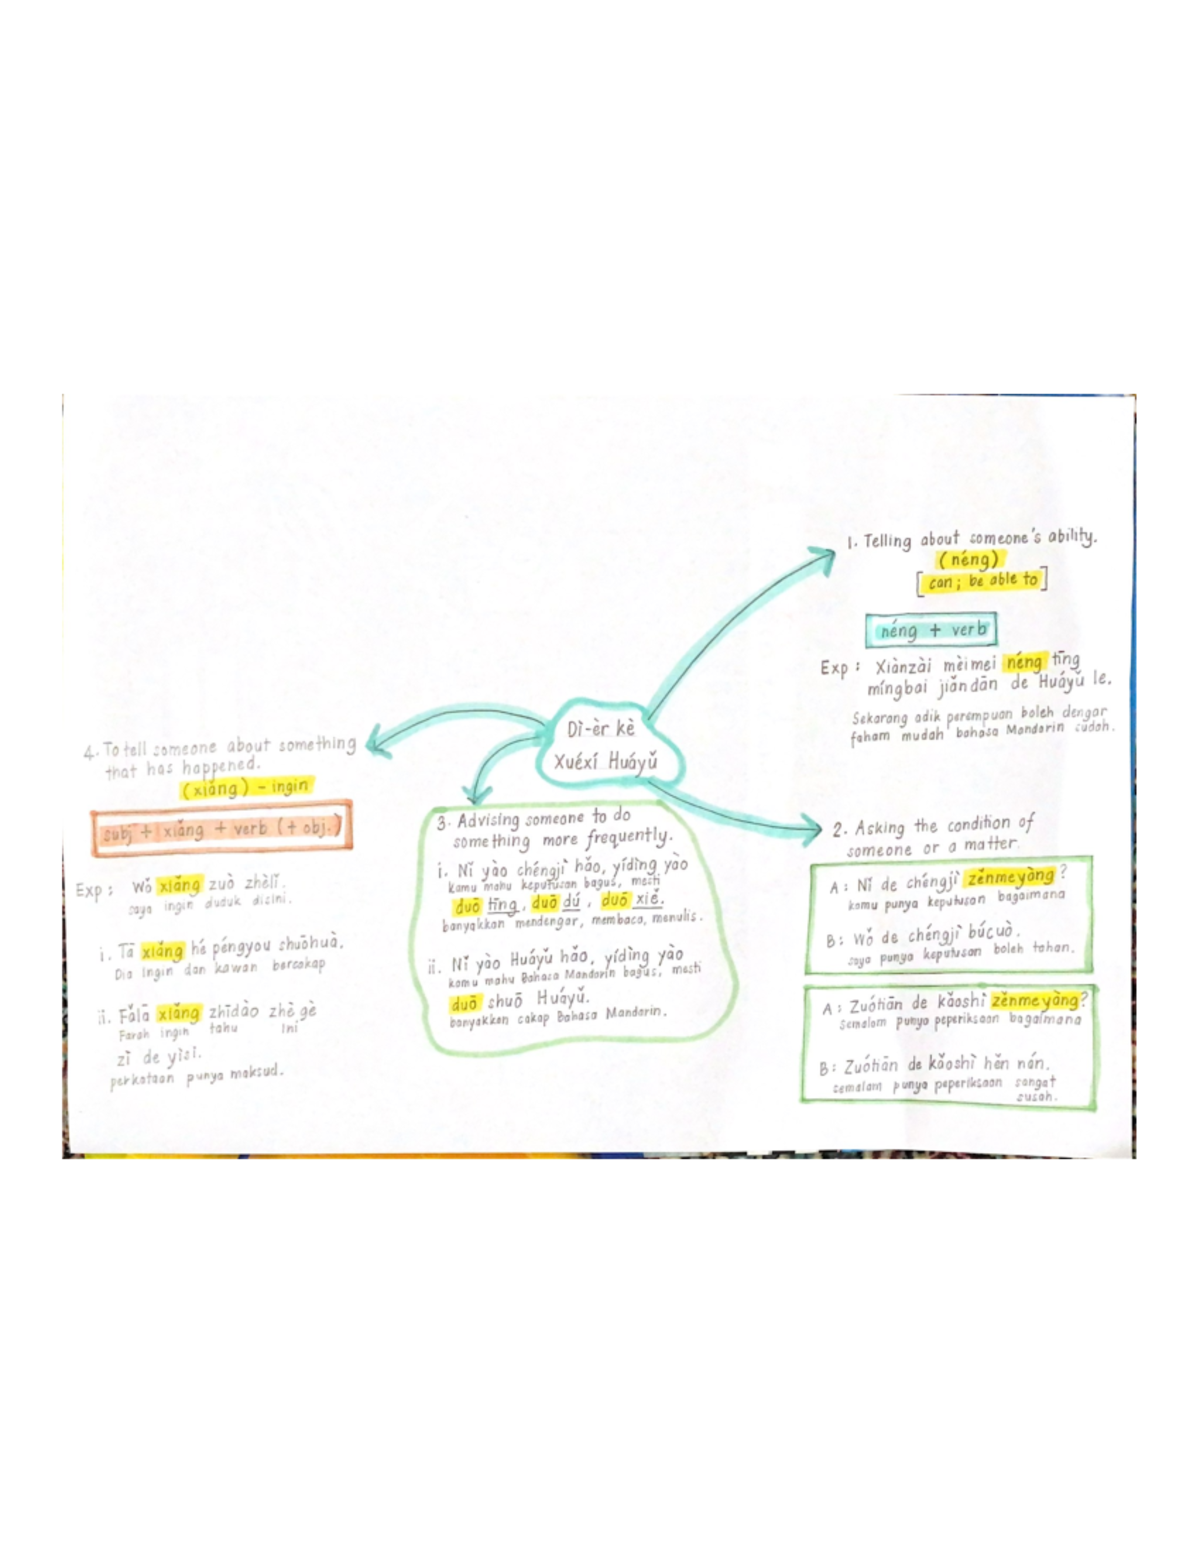 Dì-èr kè
Xuéxí Huáyǔ
1. Telling about someone's ability.
(néng)
[can ; be able to]
néng + verb
Exp : Xiànzài mèimei néng tīng
míngbai jiǎndān de Huáyǔ le.
Sekarang adik perempuan boleh dengar
faham mudah bahasa Mandarin sudah.
2. Asking the condition of
someone or a matter.
A : Nǐ de chéngjì zěnmeyàng ?
kamu punya keputusan bagaimana
B : Wǒ de chéngjì búcuò.
saya punya keputusan boleh tahan.
A : Zuótiān de kǎoshì zěnmeyàng?
semalam punya peperiksaan bagaimana
B : Zuótiān de kǎoshì hěn nán.
semalam punya peperiksaan sangat
susah.
3. Advising someone to do
something more frequently.
i. Nǐ yào chéngjì hǎo, yídìng yào
kamu mahu keputusan bagus, mesti
duō tīng, duō dú, duō xiě.
banyakkan mendengar, membaca, menulis.
ii. Nǐ yào Huáyǔ hǎo, yídìng yào
kamu mahu Bahasa Mandarin bagus, mesti
duō shuō Huáyǔ.
banyakkan cakap Bahasa Mandarin.
4. To tell someone about something
that has happened.
(xiǎng) - ingin
subj + xiǎng + verb (+ obj.)
Exp : Wǒ xiǎng zuò zhèlǐ.
saya ingin duduk disini.
i. Tā xiǎng hé péngyou shuōhuà.
Dia ingin dan kawan bercakap
ii. Fǎlā xiǎng zhīdào zhè gè
Farah ingin tahu ini
zì de yìsi.
perkataan punya maksud.